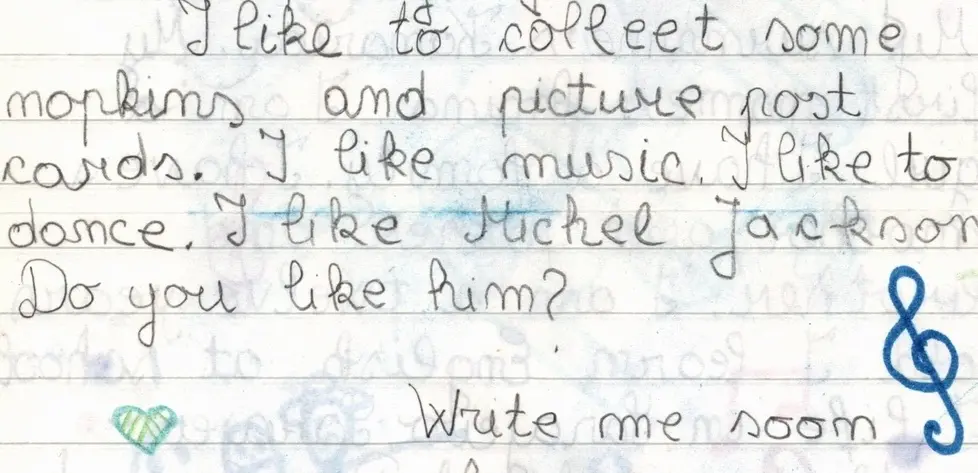 I like to collect some
napkins and picture post
cards. I like music. I like to
dance. I like Michel Jackson
Do you like him?
Write me soon